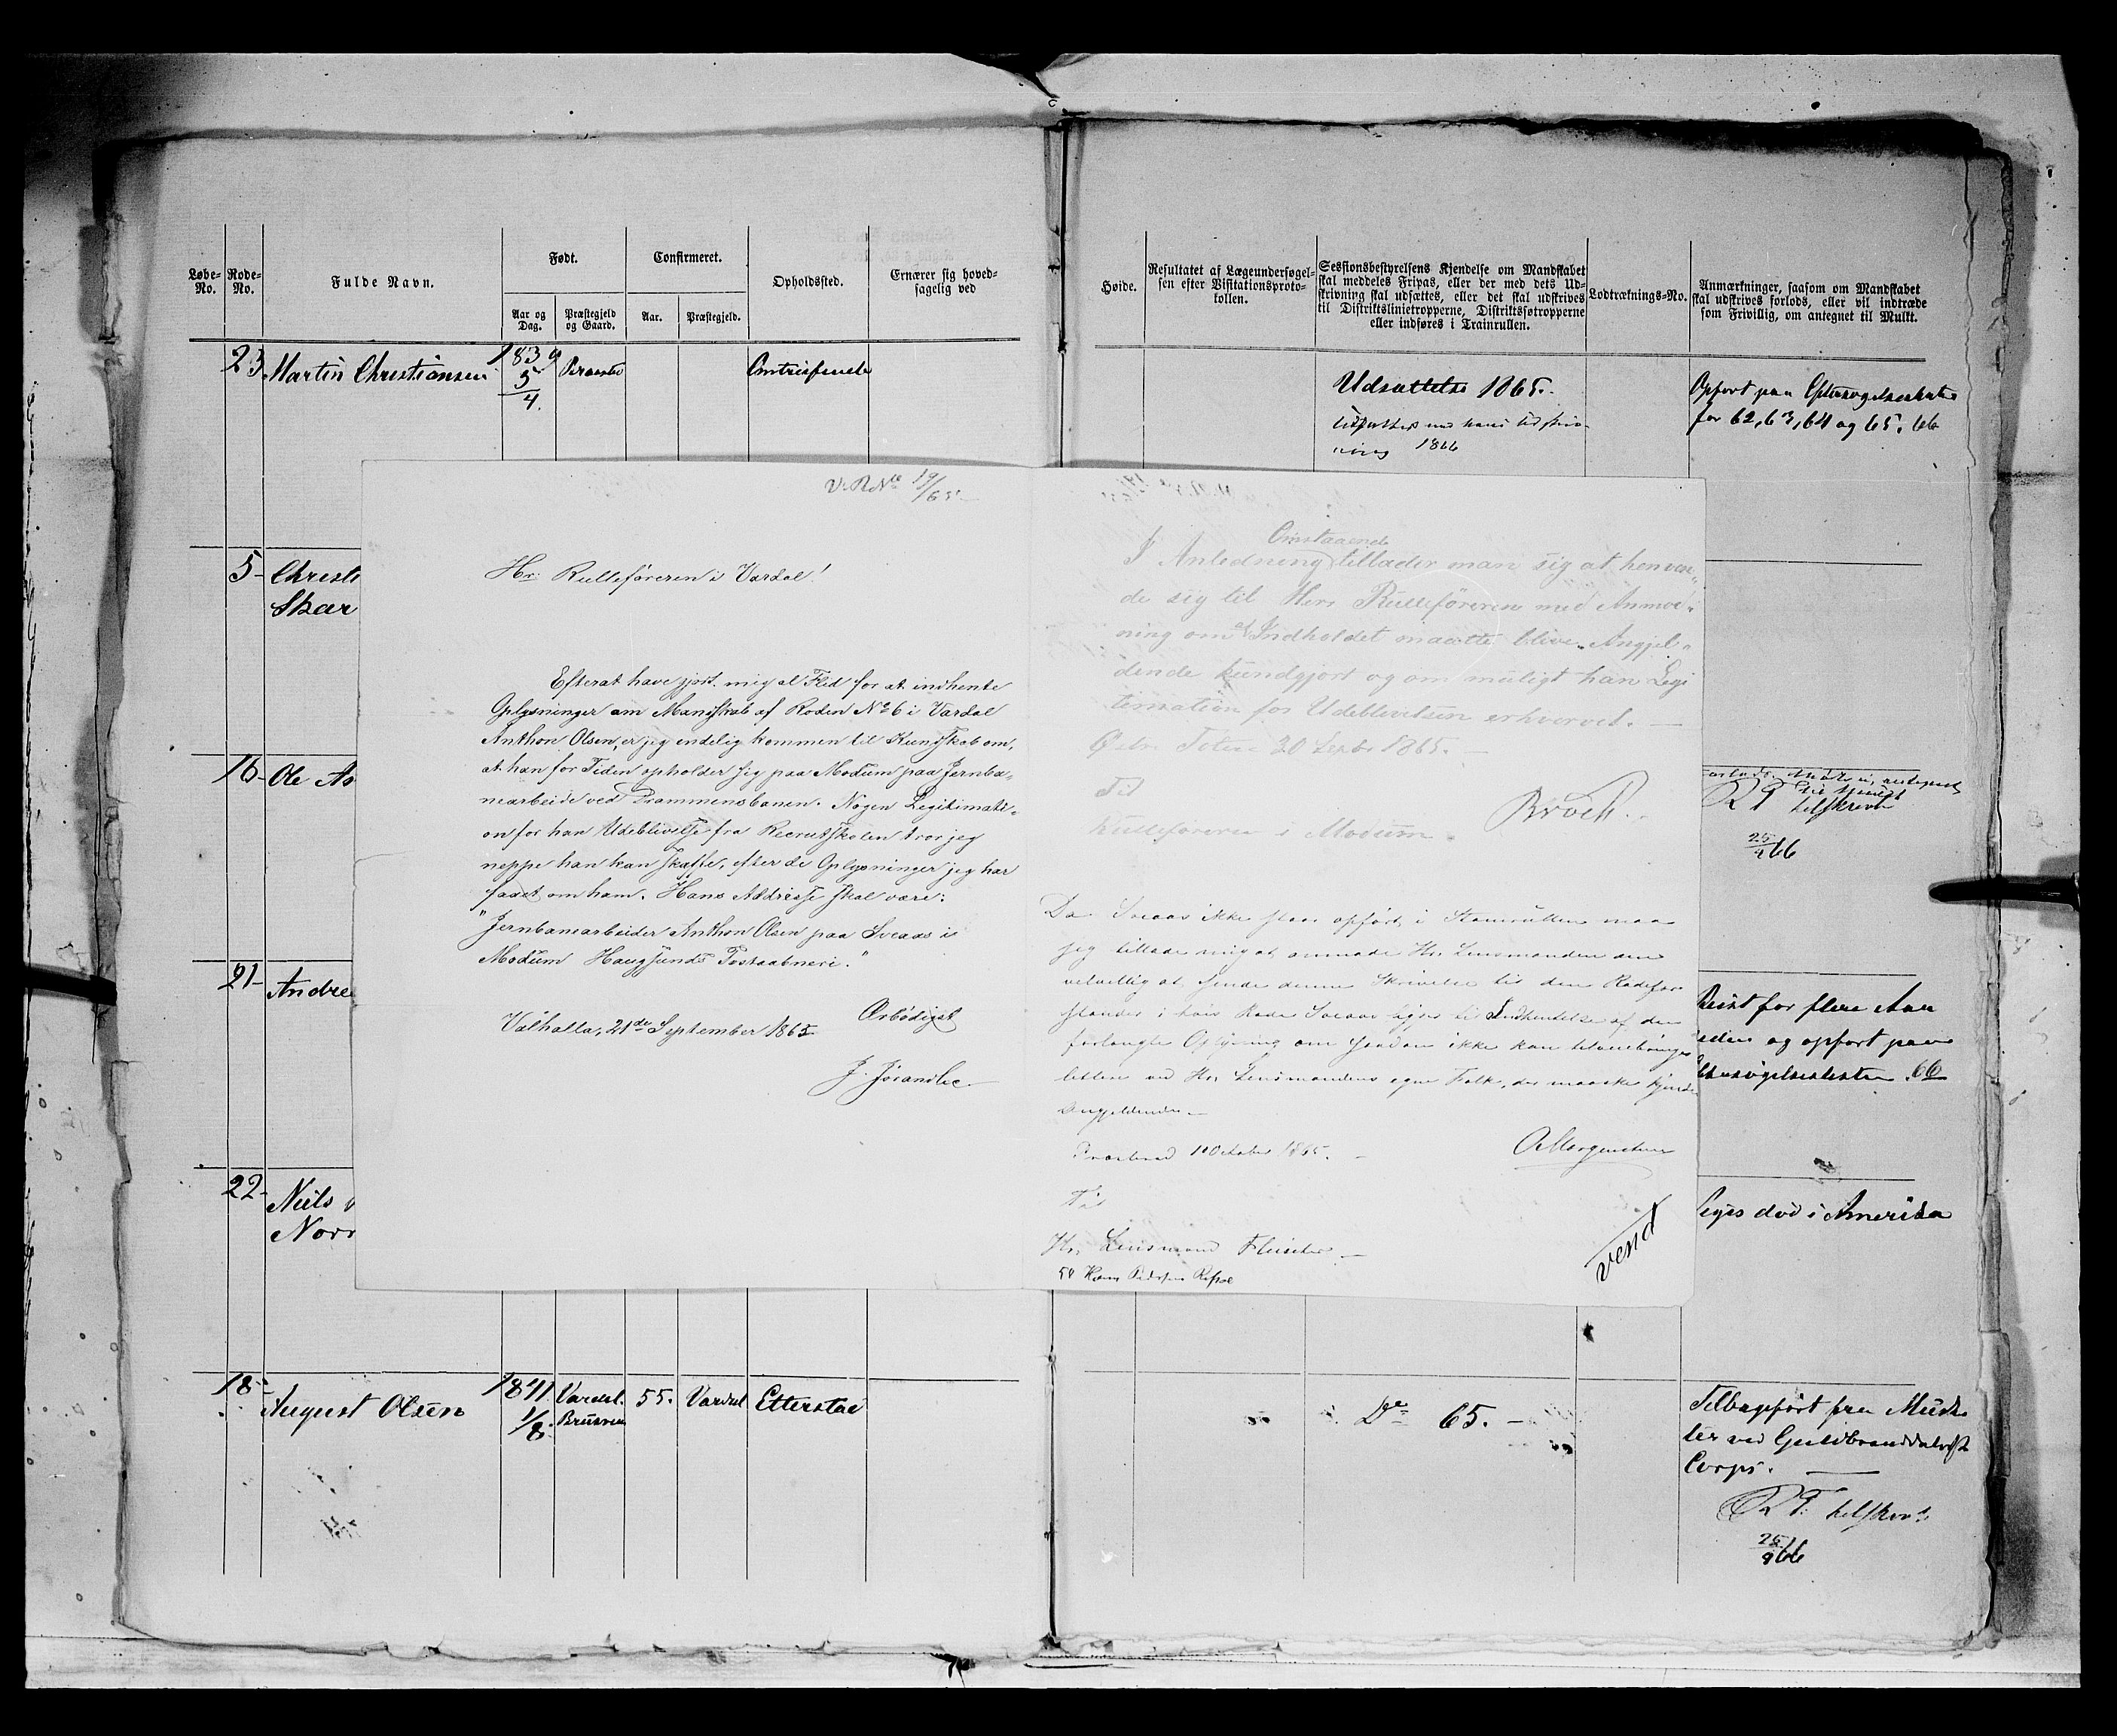 Løbe-No. Rode-No. Fulde Navn. Født. Confirmeret. Opholdssted. Ernærer sig hoved-sagelig ved
Aar og Dag. Præstegjeld og Gaard. Aar. Præstegjeld.
Høide. Resultatet af Lægeundersøgel-
sen efter Visitationsproto-
kollen.
Sessionsbestyrelsens Kjendelse om Mandskabet
skal meddeles Fripas, eller der med dets Ud-
skrivning skal udsættes, eller det skal udskrives
til Distriktslinietropperne, Distriktsføtropperne
eller indføres i Trainrullen.
Lodtræknings-No.
Anmærkninger, saasom om Mandskabet
skal udskrives forlods, eller vil indtræde
som Frivillig, om antegnet til Mulkt.
23 Martin Christiansen 1839 5/4
Udsættelse 1865.
1866
Opført paa
for 62, 63, 64 og 65. 66
5 Christi
Skar
16 Ole As
RF tilskrevet
25/9 66
21 Andre
Reist for flere Aar
siden og opført paa
66
22 Niels
Norr
Siges død i Amerika
18 August Olsen 1841 1/8 Vardal. 55. Vardal Etterstad
Do 65.
Tilbageført fra Muske
ter ved Guldbrandsdalske
Corps.
RF tilskrevt
25/9 66
V. R. No 19/65
Hr. Rulleføreren i Vardal!
Efterat have gjort mig al Flid for at indhente
Oplysninger om Mandskab af Roden No 6 i Vardal
Anthon Olsen, er jeg endelig kommen til Kundskab om,
at han for Tiden opholder sig paa Modum paa Jernba-
nearbeide ved Drammensbanen. Nogen Legitimati-
on for han Udeblivelse fra Recrutskolen tror jeg
neppe han kan skaffe, efter de Oplysninger jeg har
faaet om ham. Hans Addresse skal være:
"Jernbanearbeider Anthon Olsen paa Sveaas i
Modum Haugsunds Postaabneri."
Valhalla, 21de September 1865.
Ærbødigst
Omstaaende
I Anledning tillader man sig at henven-
de sig til Herr Rulleføreren med Anmod-
ning om at Indholdet maatte blive Angjel-
dende kundgjort og om muligt han Legi
timation for Udeblivelsen erhvervet. —
Østr. Toten 20 Septbr 1865. —
Til
Rulleføreren i Modum.
Broch.
Da Sveaas ikke staar opført i Stamrullen maa
jeg tillade mig at anmode Hr. Lensmanden om
velvillig at sende denne Skrivelse til den Rodefor
stander i hvis Rode Sveaas ligger til Indhentelse af den
forlangte Oplysning om saadan ikke kan tilveiebringes
lettere ved Hr. Lensmandens egne Folk, der maaske kjender
Angjeldende. —
1 October 1865. —
Til
Hr. Lensmand Fleischer —
vend